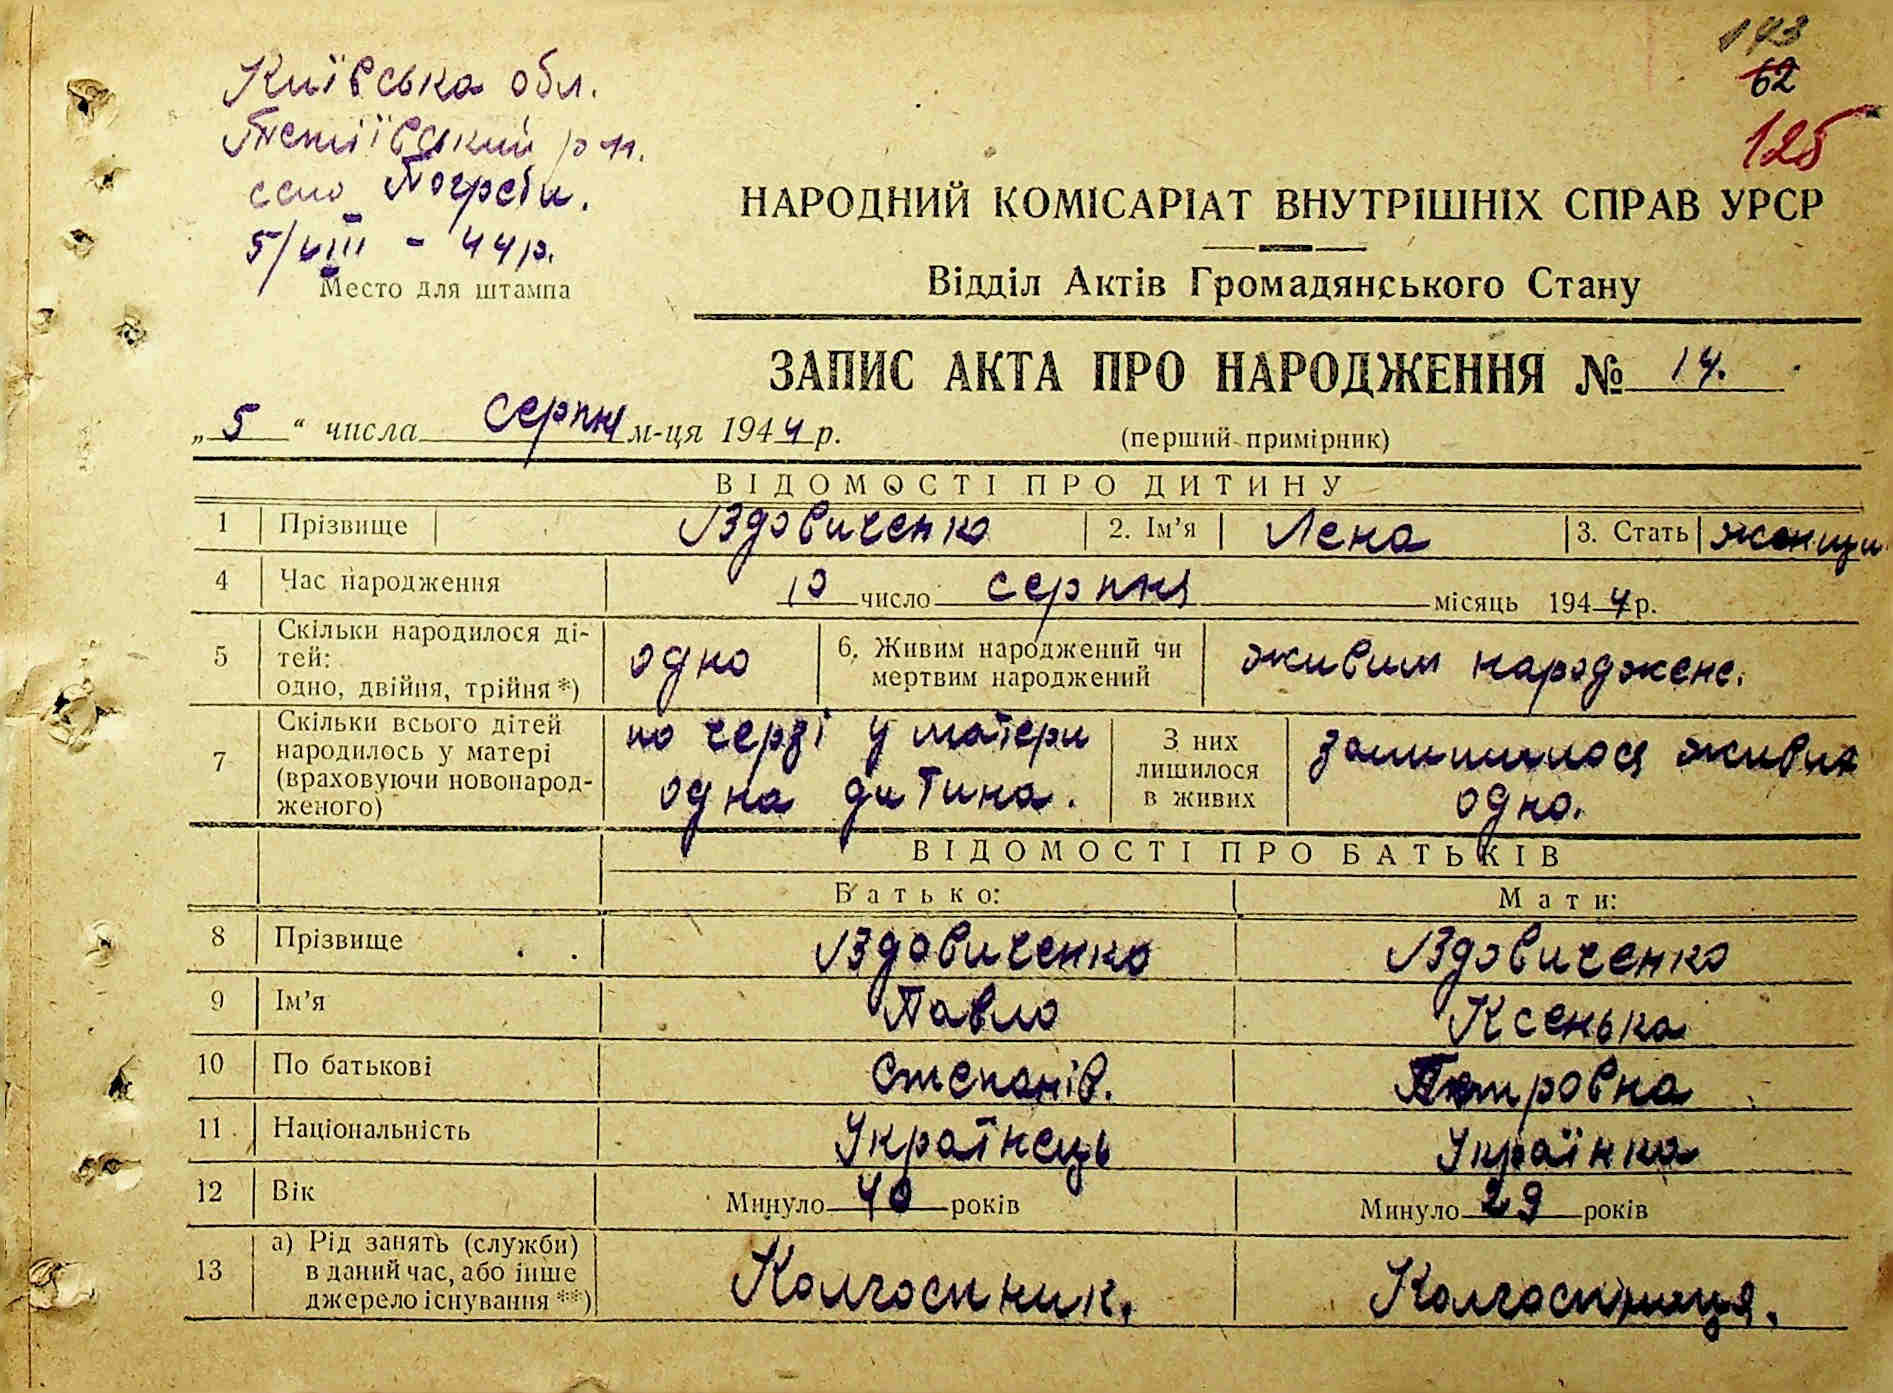 143
62
125
Київська обл.
Тетіївський р-н.
село Погреби.
5/VIII - 44р.
Место для штампа
НАРОДНИЙ КОМІСАРІАТ ВНУТРІШНІХ СПРАВ УРСР
Відділ Актів Громадянського Стану
ЗАПИС АКТА ПРО НАРОДЖЕННЯ № 14.
„5“ числа серпня м-ця 1944 р.
(перший примірник)
ВІДОМОСТІ ПРО ДИТИНУ
1 Прізвище Вдовиченко 2. Ім’я Лена 3. Стать женщи
4 Час народження 10 число серпня місяць 1944 р.
5 Скільки народилося ді-
тей:
одно, двійня, трійня *)
одно
6. Живим народжений чи
мертвим народжений
живим народжене.
7 Скільки всього дітей
народилось у матері
(враховуючи новонарод-
женого)
по черзі у матери
одна дитина.
З них
лишилося
в живих
залишилося живих
одно.
ВІДОМОСТІ ПРО БАТЬКІВ
Батько: Мати:
8 Прізвище Вдовиченко Вдовиченко
9 Ім’я Павло Ксенька
10 По батькові Степанів. Петровна
11 Національність Українець Українка
12 Вік Минуло 40 років Минуло 29 років
13 а) Рід занять (служби)
в даний час, або інше
джерело існування **)
Колгоспник. Колгоспниця.